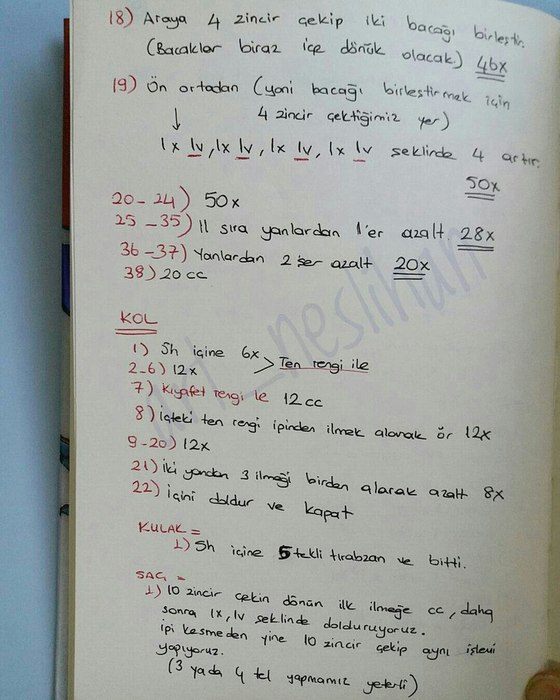 18) Araya 4 zincir çekip iki bacağı birleştir.
(Bacaklar biraz içe dönük olacak) 46x
19) Ön ortadan (yani bacağı birleştirmek için
4 zincir çektiğimiz yer)
1x 1v, 1x 1v, 1x 1v, 1x 1v şeklinde 4 artır.
50x
20-24) 50x
25-35) 11 sıra yanlardan 1'er azalt 28x
36-37) Yanlardan 2şer azalt 20x
38) 20 cc
KOL
1) Sh içine 6x > Ten rengi ile
2-6) 12x
7) Kıyafet rengi ile 12 cc
8) İçteki ten rengi ipinden ilmek alarak ör 12x
9-20) 12x
21) İki yandan 3 ilmeği birden alarak azalt 8x
22) İçini doldur ve kapat
KULAK =
1) Sh içine 5 tekli tırabzan ve bitti.
SAÇ =
1) 10 zincir çekin dönün ilk ilmeğe cc, daha
sonra 1x, 1v şeklinde dolduruyoruz.
İpi kesmeden yine 10 zincir çekip aynı işlemi
yapıyoruz.
(3 yada 4 tel yapmamız yeterli)